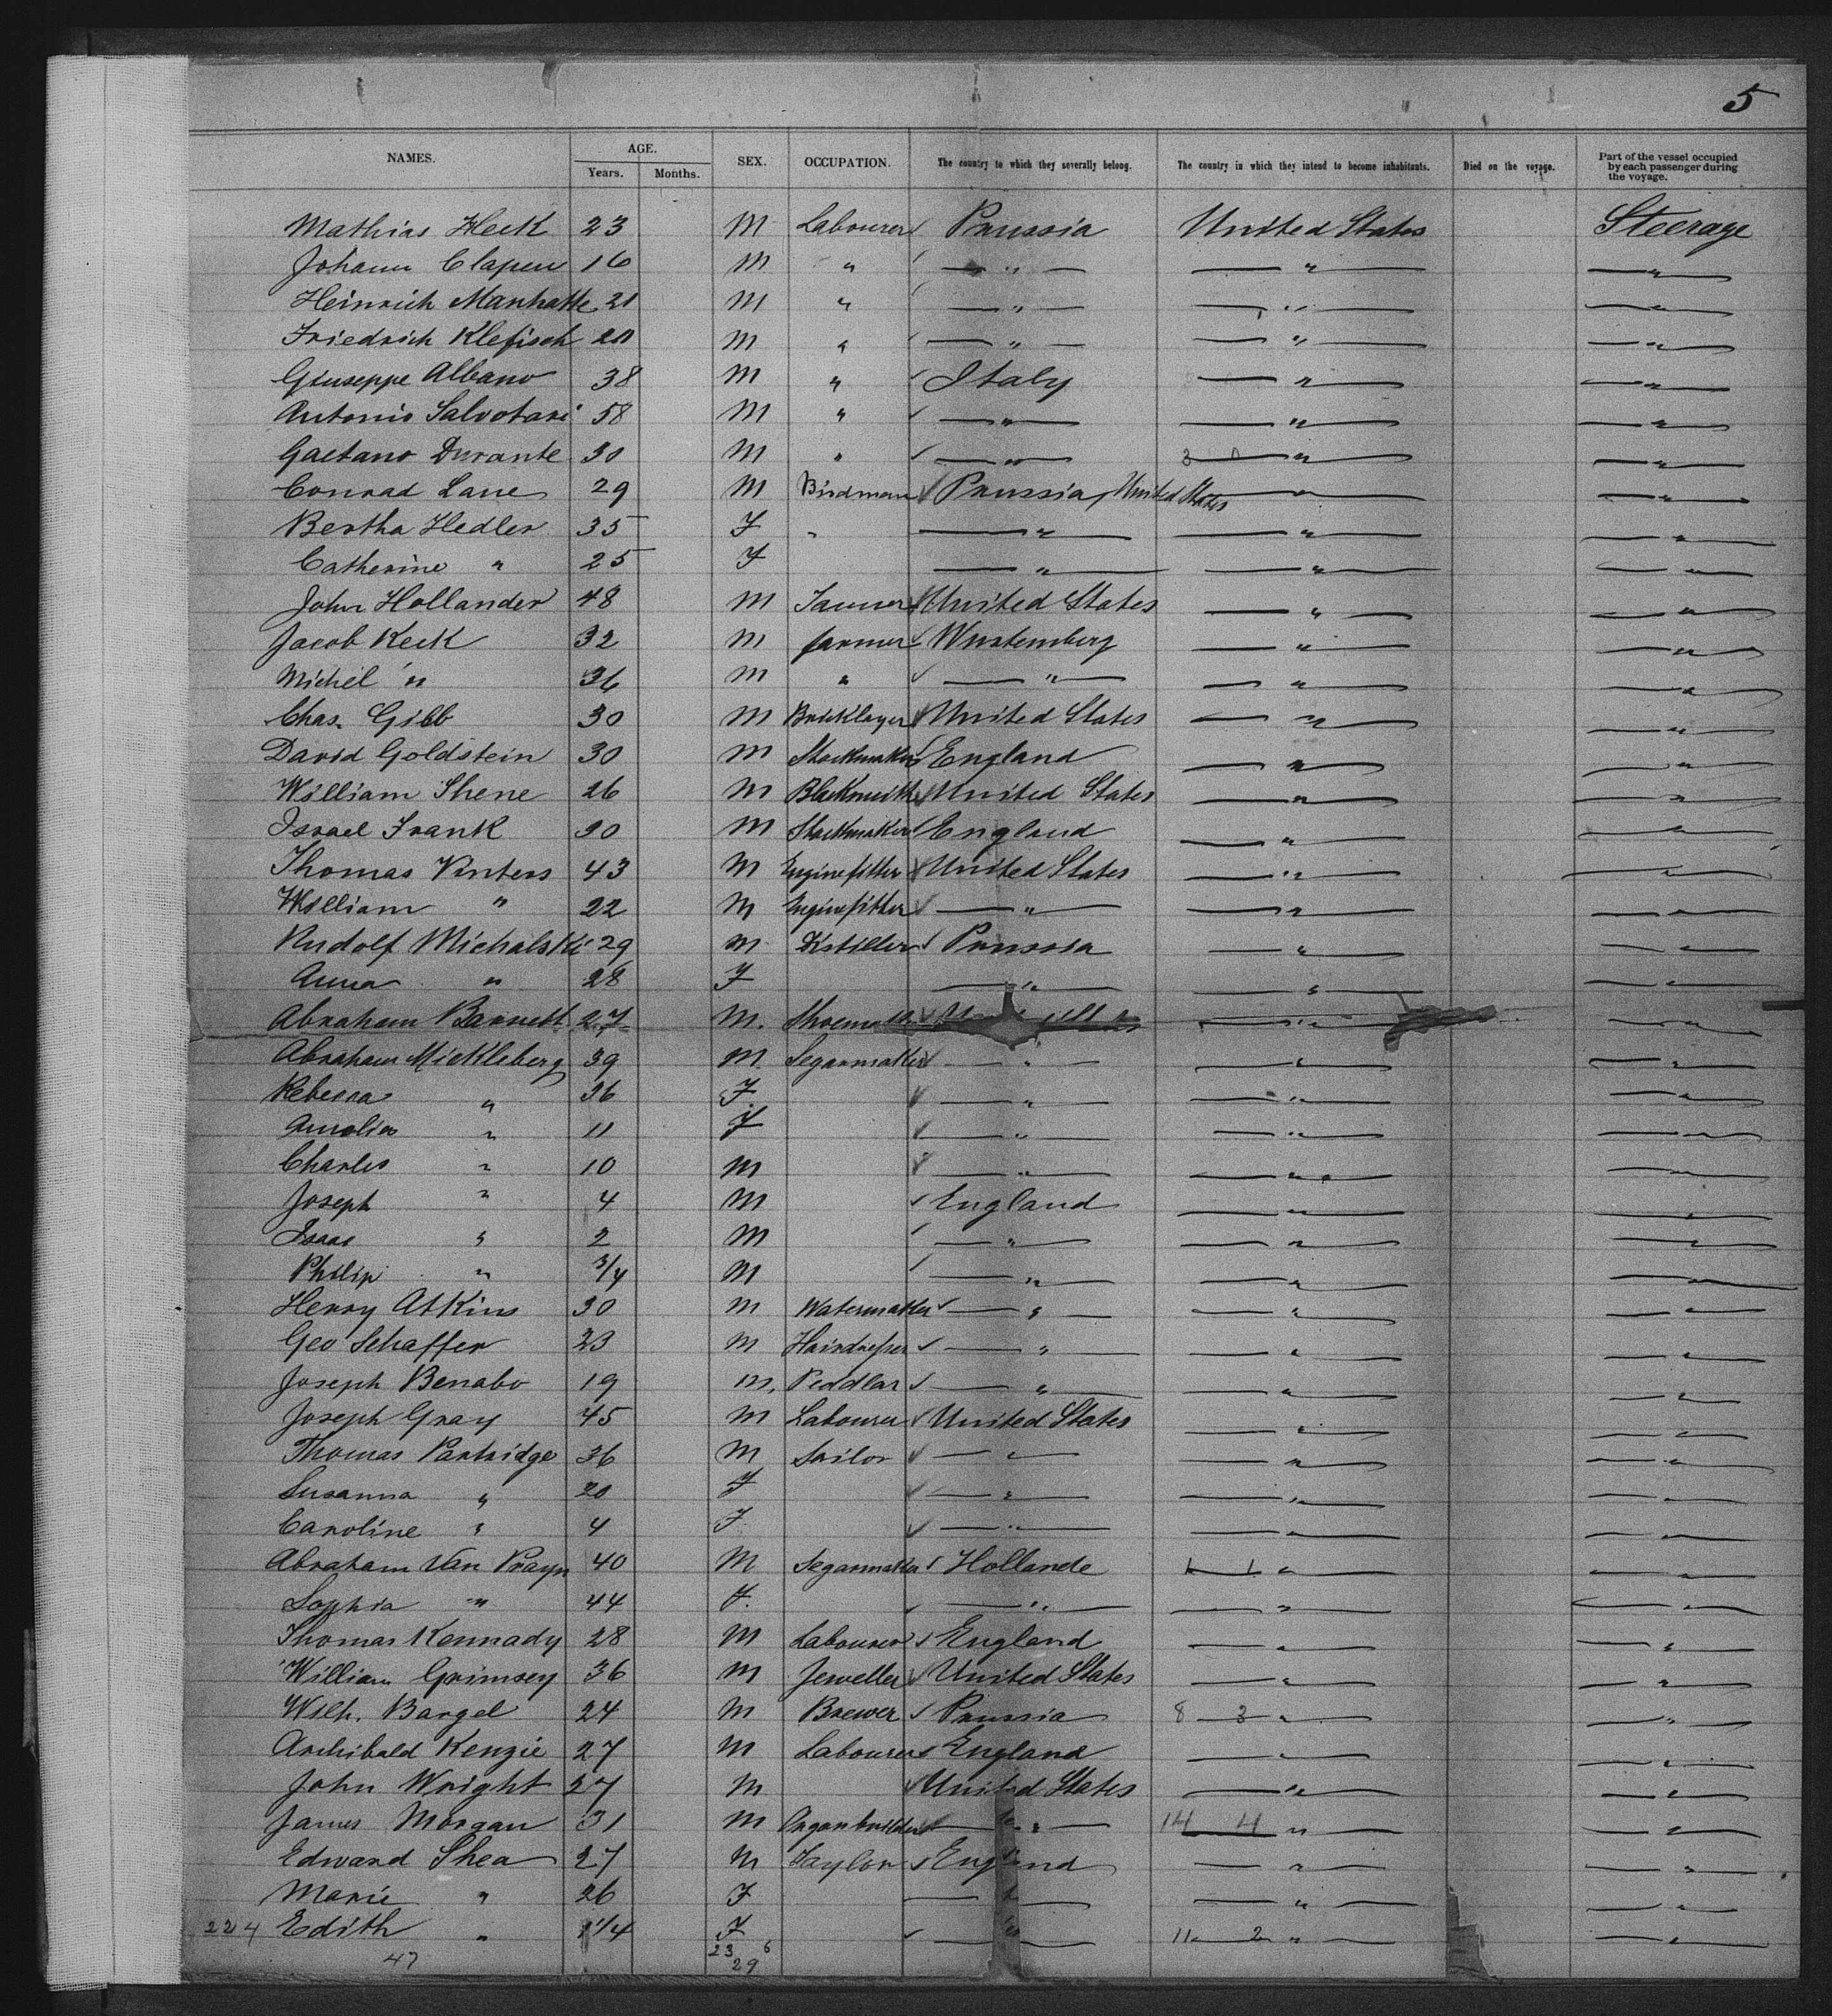 5
NAMES. AGE. SEX. OCCUPATION. The country to which they severally belong. The country in which they intend to become inhabitants. Died on the voyage. Part of the vessel occupied by each passenger during the voyage.
Years. Months.
Mathias Heck 23 M Labourer ✓ Prussia United States Steerage
Johann Clapen 16 M " ✓ — " — — " — — " —
Heinrich Manhatte 21 M " ✓ — " — — " — — " —
Friedrich Klefisch 20 M " ✓ — " — — " — — " —
Giuseppe Albano 38 M " ✓ Italy — " — — " —
Antonio Salvotari 58 M " ✓ — " — — " — — " —
Gaetano Durante 30 M " ✓ — " — 3 1 — " — — " —
Conrad Lane 29 M Birdman ✓ Prussia, United States — " — — " —
Bertha Hedler 35 F " — " — — " — — " —
Catherine " 25 F — " — — " — — " —
John Hollander 48 M Tanner ✓ United States — " — — " —
Jacob Keck 32 M farmer ✓ Wurtemberg — " — — " —
Michel " 36 M " ✓ — " — — " — — " —
Chas. Gibb 30 M Bricklayer ✓ United States — " — — " —
David Goldstein 30 M Stockmaker ✓ England — " — — " —
William Shene 26 M Blacksmith ✓ United States — " — — " —
Israel Frank 30 M Stockmaker ✓ England — " — — " —
Thomas Vinters 43 M Enginefitter ✓ United States — " — — " —
William " 22 M Enginefitter ✓ — " — — " — — " —
Rudolf Michalski 29 M Distiller ✓ Prussia — " — — " —
Anna " 28 F — " — — " — — " —
Abraham Barnett 27 M. ✓ — " —
Abraham Mickleberg 39 M Segarmaker ✓ — " — — " — — " —
Rebecca " 36 F ✓ — " — — " — — " —
Amelia " 11 F ✓ — " — — " — — " —
Charles " 10 M ✓ — " — — " — — " —
Joseph " 4 M ✓ England — " — — " —
Isaac " 2 M ✓ — " — — " — — " —
Philip " 3/4 M ✓ — " — — " — — " —
Henry Atkins 30 M Watermaker ✓ — " — — " — — " —
Geo Schaffer 23 M Hairdresser ✓ — " — — " — — " —
Joseph Benabo 19 M, Peddlar ✓ — " — — " — — " —
Joseph Gray 45 M Labourer ✓ United States — " — — " —
Thomas Partridge 36 M Sailor ✓ — " — — " — — " —
Susanna " 20 F ✓ — " — — " — — " —
Caroline " 4 F ✓ — " — — " — — " —
Abraham Van Prayn 40 M Segarmaker ✓ Hollande 1 1 — " — — " —
Sophia " 44 F. ✓ — " — — " — — " —
Thomas Kennady 28 M Labourer ✓ England — " — — " —
William Grimsey 36 M Jeweller ✓ United States — " — — " —
Wilh. Bargel 24 M Brewer ✓ Prussia 8 3 — " — — " —
Archibald Kenzie 27 M Labourer ✓ England — " — — " —
John Wright 27 M ✓ United States — " — — " —
James Morgan 31 M Organbuilder ✓ — " — 14 4 — " — — " —
Edward Shea 27 M Taylor ✓ England — " — — " —
Marie " 26 F — " — — " — — " —
224 Edith " 1 1/4 F ✓ — " — 11 2 — " — — " —
47 23 6
29